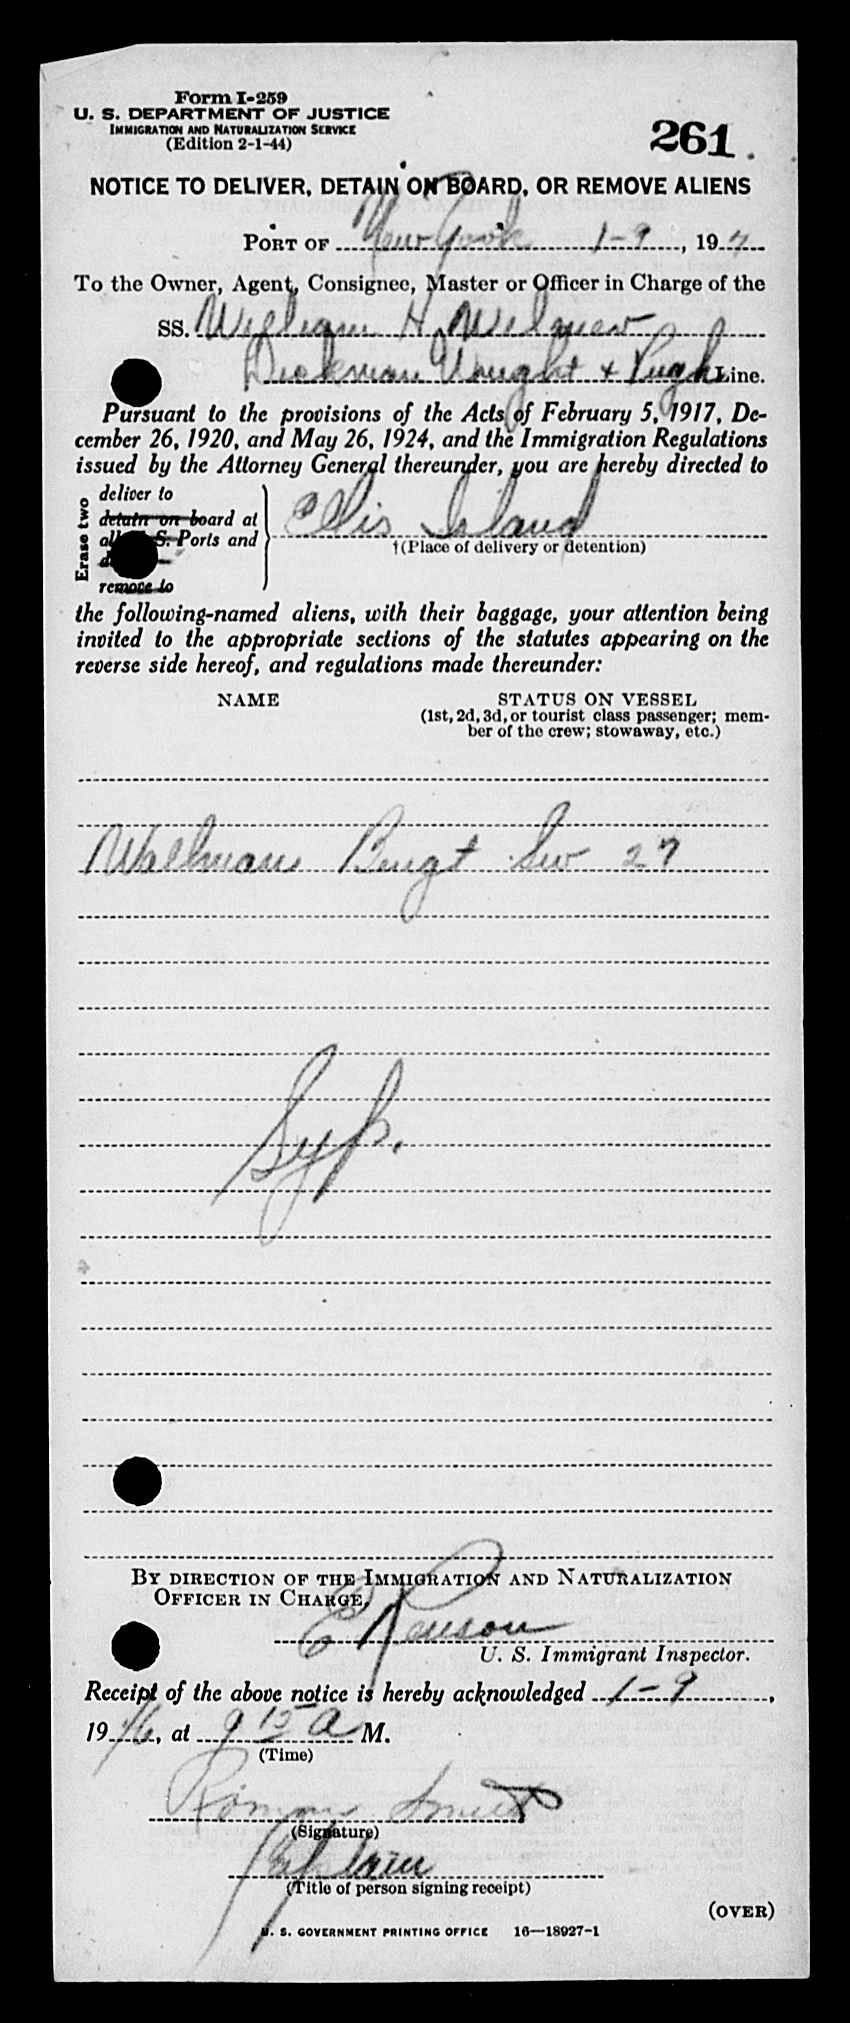 Form I-259
U. S. DEPARTMENT OF JUSTICE
IMMIGRATION AND NATURALIZATION SERVICE
(Edition 2-1-44)
261
NOTICE TO DELIVER, DETAIN ON BOARD, OR REMOVE ALIENS
PORT OF New York 1-9, 19
To the Owner, Agent, Consignee, Master or Officer in Charge of the
SS. William H. Wilmer
Dickman Wright & Pugh Line.
Pursuant to the provisions of the Acts of February 5, 1917, De-
cember 26, 1920, and May 26, 1924, and the Immigration Regulations
issued by the Attorney General thereunder, you are hereby directed to
Erase two
deliver to
detain on board at
all U. S. Ports and
remove to
Ellis Island
†(Place of delivery or detention)
the following-named aliens, with their baggage, your attention being
invited to the appropriate sections of the statutes appearing on the
reverse side hereof, and regulations made thereunder:
NAME STATUS ON VESSEL
(1st, 2d, 3d, or tourist class passenger; mem-
ber of the crew; stowaway, etc.)
Wallman Bengt Sw 27
Syp.
BY DIRECTION OF THE IMMIGRATION AND NATURALIZATION
OFFICER IN CHARGE,
E Ranson
U. S. Immigrant Inspector.
Receipt of the above notice is hereby acknowledged 1-9,
1946, at 9 15 A M.
(Time)
Smith
(Signature)
Captain
(Title of person signing receipt)
(OVER)
U. S. GOVERNMENT PRINTING OFFICE 16—18927-1